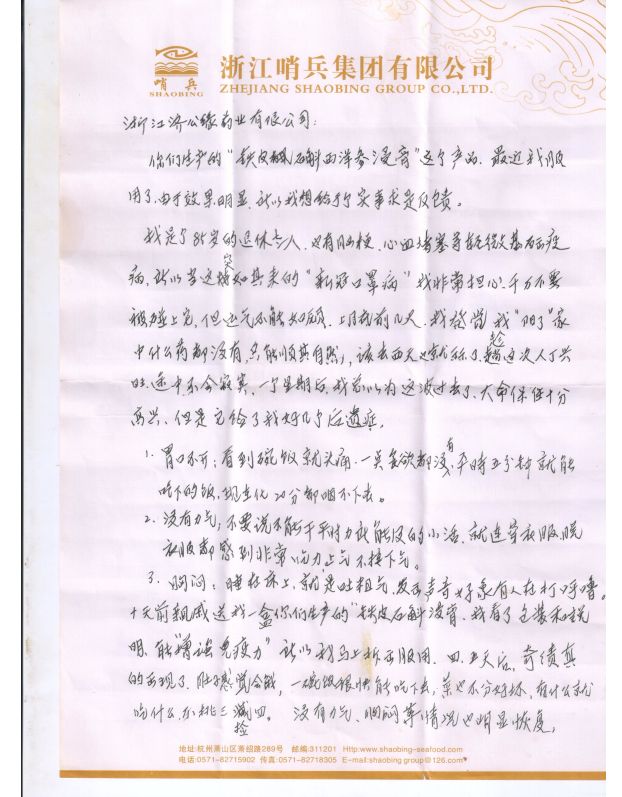 哨兵
SHAOBING
浙江哨兵集团有限公司
ZHEJIANG SHAOBING GROUP CO.,LTD.
浙江济公缘药业有限公司:
你们生产的"铁皮枫斗西洋参浸膏"这个产品.最近我服
用了,由于效果明显,所以我想给予实事求是反馈。
我是个85岁的退休老人,也有脑梗、心血堵塞等
病,所以当这场突如其来的"新冠口罩病"我非常担心,千万不要
被碰上它,但还是不能如愿,上月前几天,我发觉我"阳了"家
中什么药都没有,只能顺其自然,该去西天也就算了,趁这次人丁兴
旺,途中不会寂寞,一个星期后,我总以为这波过去了,大命保住十分
高兴,但是它给了我好几个后遗症,
1. 胃口不开:看到碗饭就头痛,一点食欲都没有,平时五分钟就能
吃下的饭,现在化20分都咽不下去。
2. 没有力气:不要说不能干平时力所能及的小活,就连穿衣服脱
衣服都感到非常吃力,上气不接下气。
3. 胸闷:睡在床上,就是吐粗气,发出声音好象有人在打呼噜。
十天前亲戚送我一盒你们生产的"铁皮石斛浸膏",我看了包装和说
明,能"增强免疫力"所以我马上拆开服用,四、五天后,奇绩真
的出现了,肚子感觉会饿,一碗饭很快能吃下去,菜也不分好坏,有什么就
吃什么,不挑三捡四。没有力气、胸闷等情况也明显恢复,
地址:杭州萧山区萧绍路289号 邮编:311201 Http:www.shaobing-seafood.com
电话:0571-82715902 传真:0571-82718305 E-mail:shaobing group@126.com